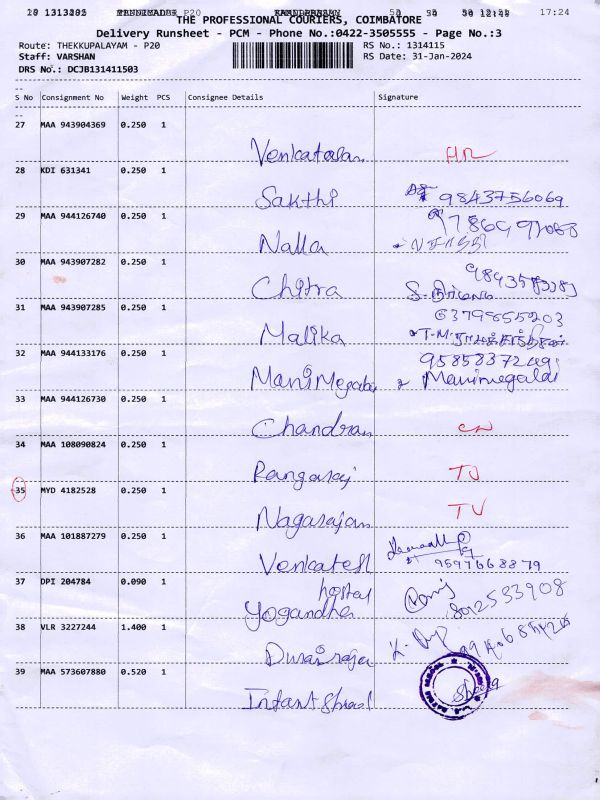 THE PROFESSIONAL COURIERS, COIMBATORE 17:24
Delivery Runsheet - PCM - Phone No.:0422-3505555 - Page No.:3
Route: THEKKUPALAYAM - P20 RS No.: 1314115
Staff: VARSHAN RS Date: 31-Jan-2024
DRS No.: DCJB131411503
S No Consignment No Weight PCS Consignee Details Signature
27 MAA 943904369 0.250 1
Venkatalan
28 KDI 631341 0.250 1
Sakthi 9843756069
29 MAA 944126740 0.250 1
Nalla
30 MAA 943907282 0.250 1
Chitra
31 MAA 943907285 0.250 1
6379855203
Malika
32 MAA 944133176 0.250 1
ManiMegalai Manimegalai
33 MAA 944126730 0.250 1
Chandran
34 MAA 108090824 0.250 1
Rangaraj TJ
35 MYD 4182528 0.250 1
Nagarajan TV
36 MAA 101887279 0.250 1
Venkatesh 9597668879
37 DPI 204784 0.090 1
hostel
Yogandha 8012533908
38 VLR 3227244 1.400 1
Durairaja
39 MAA 573607880 0.520 1
Infant